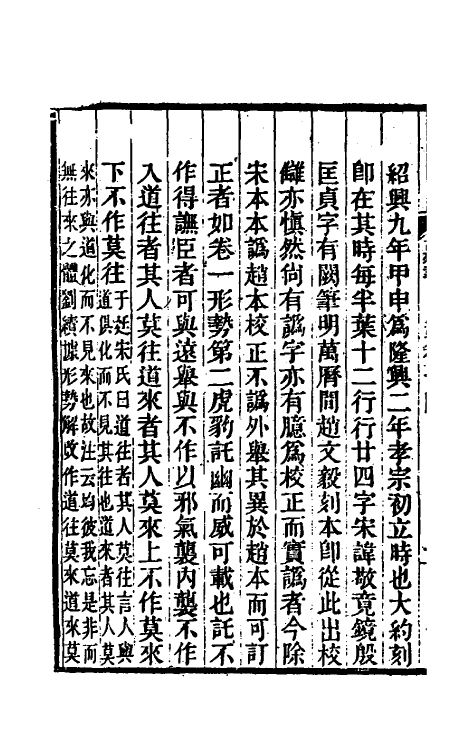 紹興九年甲申爲隆興二年孝宗初立時也大約刻
卽在其時每半葉十二行行廿四字宋諱敬竟鏡殷
匡貞字有闕筆明萬曆間趙文毅刻本卽從此出校
讎亦愼然尙有譌字亦有臆爲校正而實譌者今除
宋本本譌趙本校正不譌外舉其異於趙本而可訂
正者如卷一形勢第二虎豹託幽而威可載也託不
作得譕臣者可與遠舉與不作以邪氣襲內襲不作
入道往者其人莫往道來者其人莫來上不作莫來
下不作莫往
于廷宋氏曰道往者其人莫往言人與
道俱化而不見其往也道來者其人莫
來亦與道化而不見來也故注云均彼我忘是非而
無往來之體劉績據形勢解改作道往莫來道來莫